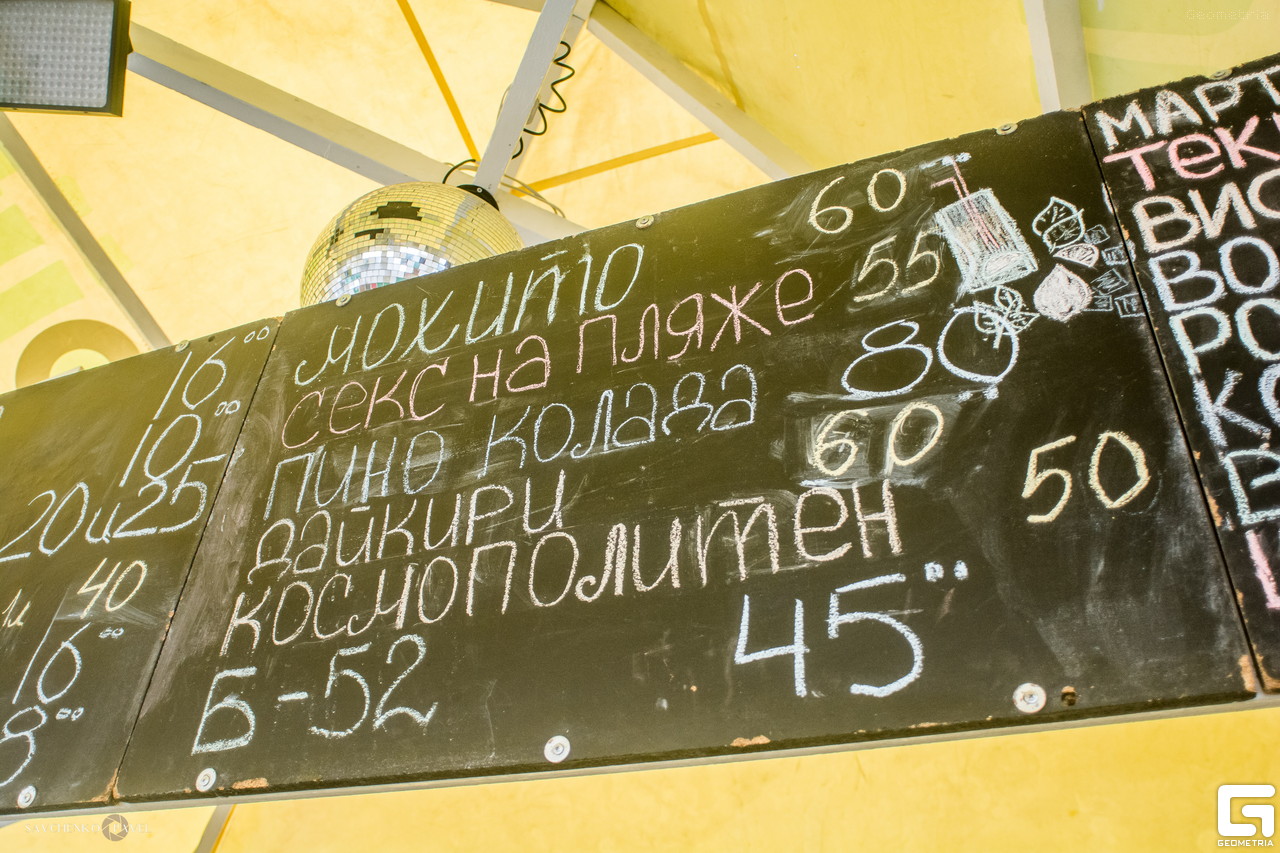 16 00
10 00
20 и 25
40
16 00
8 00
мохито 60
секс на пляже 55
пино колада 80
дайкири 60
космополитен 50
Б-52 45 00
МАРТ
Теки
Вис
ВО
РО
Ко
GEOMETRIA